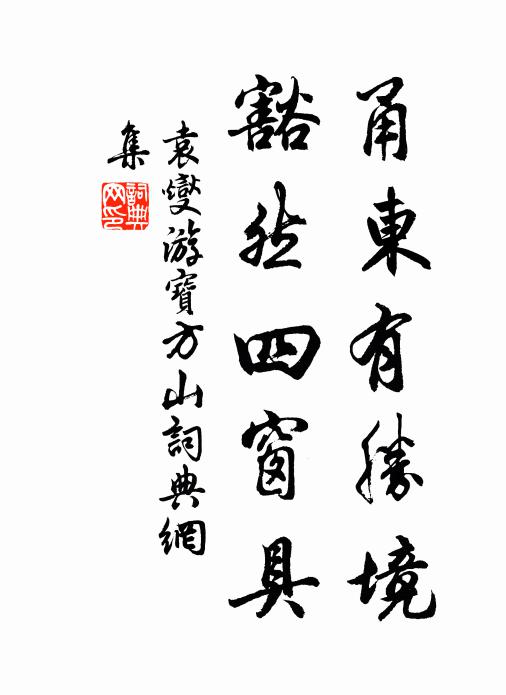 甬東有勝境
豁然四窗具
袁燮游寶方山詞典網
集
詞典
网印